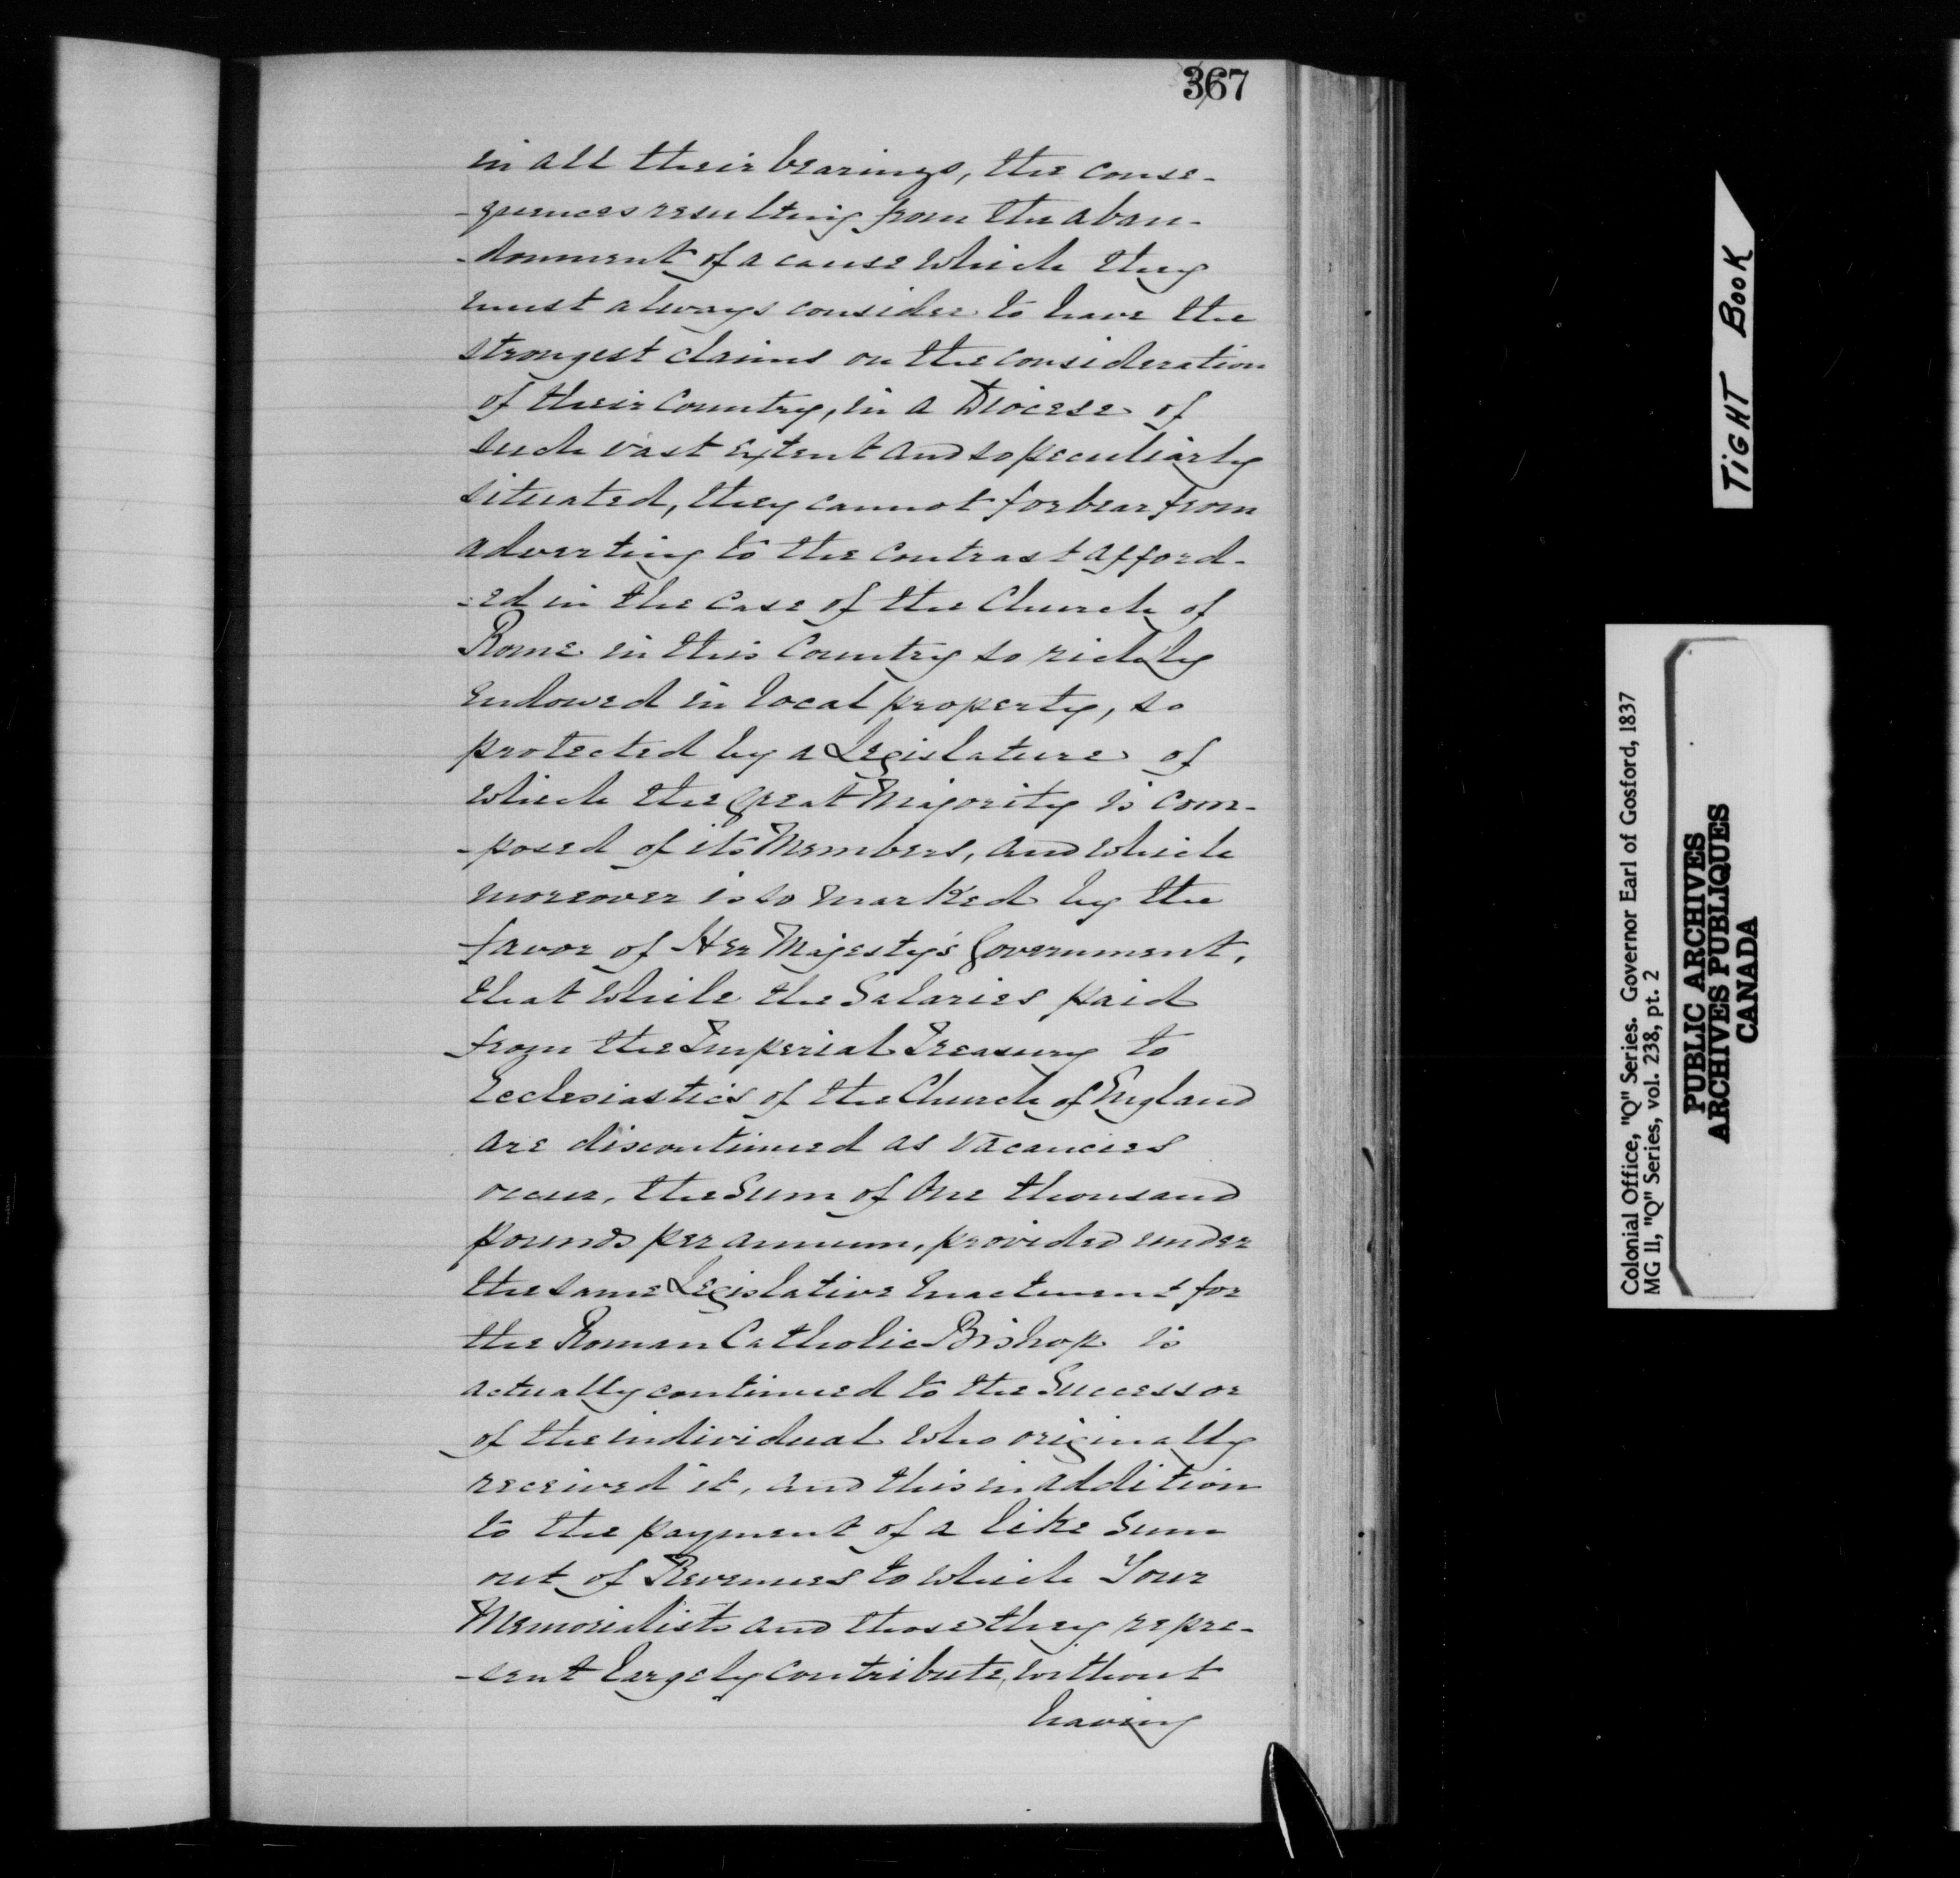 367
in all their bearings, the conse-
-quences resulting from the aban-
-donment of a cause which they
must always consider to have the
strongest claims on the consideration
of their Country, in a Diocese of
such vast extent and so peculiarly
situated, they cannot forbear from
adverting to the contrast afford-
-ed in the case of the Church of
Rome in this Country so richly
endowed in local property, so
protected by a Legislature of
which the great Majority is com-
-posed of its Members, and which
moreover is so marked by the
favor of Her Majesty's Government,
that while the Salaries paid
from the Imperial Treasury to
Ecclesiastics of the Church of England
are discontinued as vacancies
occur, the Sum of One thousand
pounds per annum, provided under
the same Legislative Enactment for
the Roman Catholic Bishop is
actually continued to the Successor
of the individual who originally
received it, and this in addition
to the payment of a like sum
out of Revenues to which Your
Memorialists and those they repre-
-sent largely contribute, without
having
TIGHT BOOK
Colonial Office, "Q" Series. Governor Earl of Gosford, 1837
MG 11, "Q" Series, vol. 238, pt. 2
PUBLIC ARCHIVES
ARCHIVES PUBLIQUES
CANADA